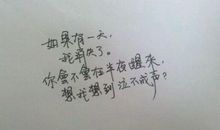 如果有一天，
我消失了。
你会不会在半夜醒来，
想我想到泣不成声？